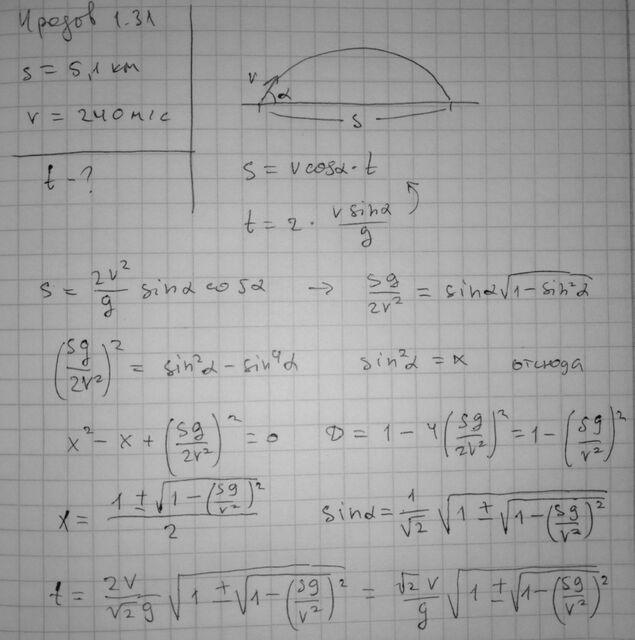 Иродов 1.31
s = 5,1 км
v = 240 м/с
t - ?
v α
s
s = v cosα · t
t = 2 · v sinα / g
s = 2v² / g sinα cosα → sg / 2v² = sinα √(1 - sin²α)
(sg / 2v²)² = sin²α - sin⁴α sin²α = x отсюда
x² - x + (sg / 2v²)² = 0 D = 1 - 4(sg / 2v²)² = 1 - (sg / v²)²
x = (1 ± √(1 - (sg / v²)²)) / 2 sinα = 1 / √2 √(1 ± √(1 - (sg / v²)²))
t = 2v / √2 g √(1 ± √(1 - (sg / v²)²)) = √2 v / g √(1 ± √(1 - (sg / v²)²))